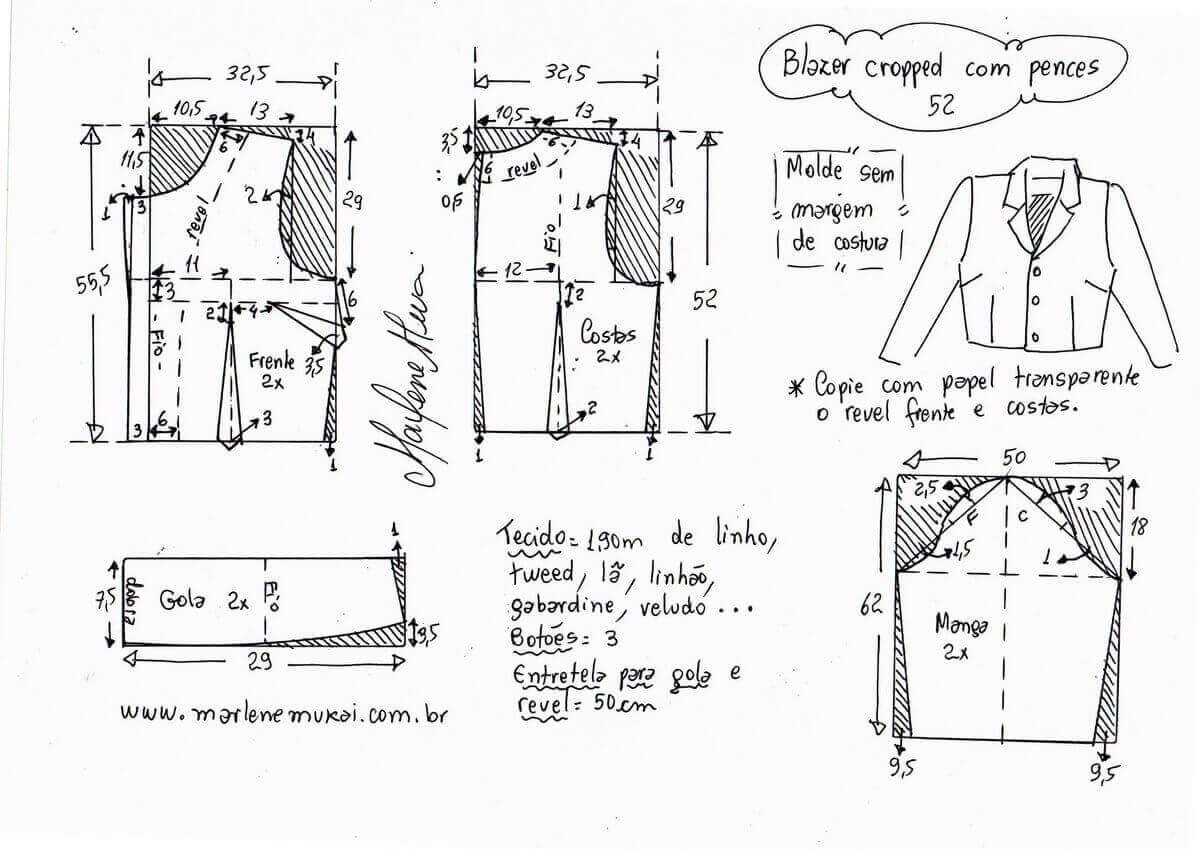 Blazer cropped com pences
52
Molde sem
margem
de costura
* Copie com papel transparente
o revel frente e costas.
32,5
10,5
13
11,5
6
4
3
1
revel
2
29
55,5
11
3
6
2
4
Fio
Frente
2x
3,5
6
3
3
1
Marlene Mukai
32,5
10,5
13
3,5
6
4
6
revel
0,5
1
Fio
29
12
2
52
Costas
2x
2
1
1
7,5
dobra
Gola 2x
Fio
1
9,5
29
www.marlenemukai.com.br
Tecido= 1,90m de linho,
tweed, lã, linhão,
gabardine, veludo ...
Botões= 3
Entretela para gola e
revel= 50cm
50
2,5
3
F
C
18
1,5
1
62
Manga
2x
9,5
9,5